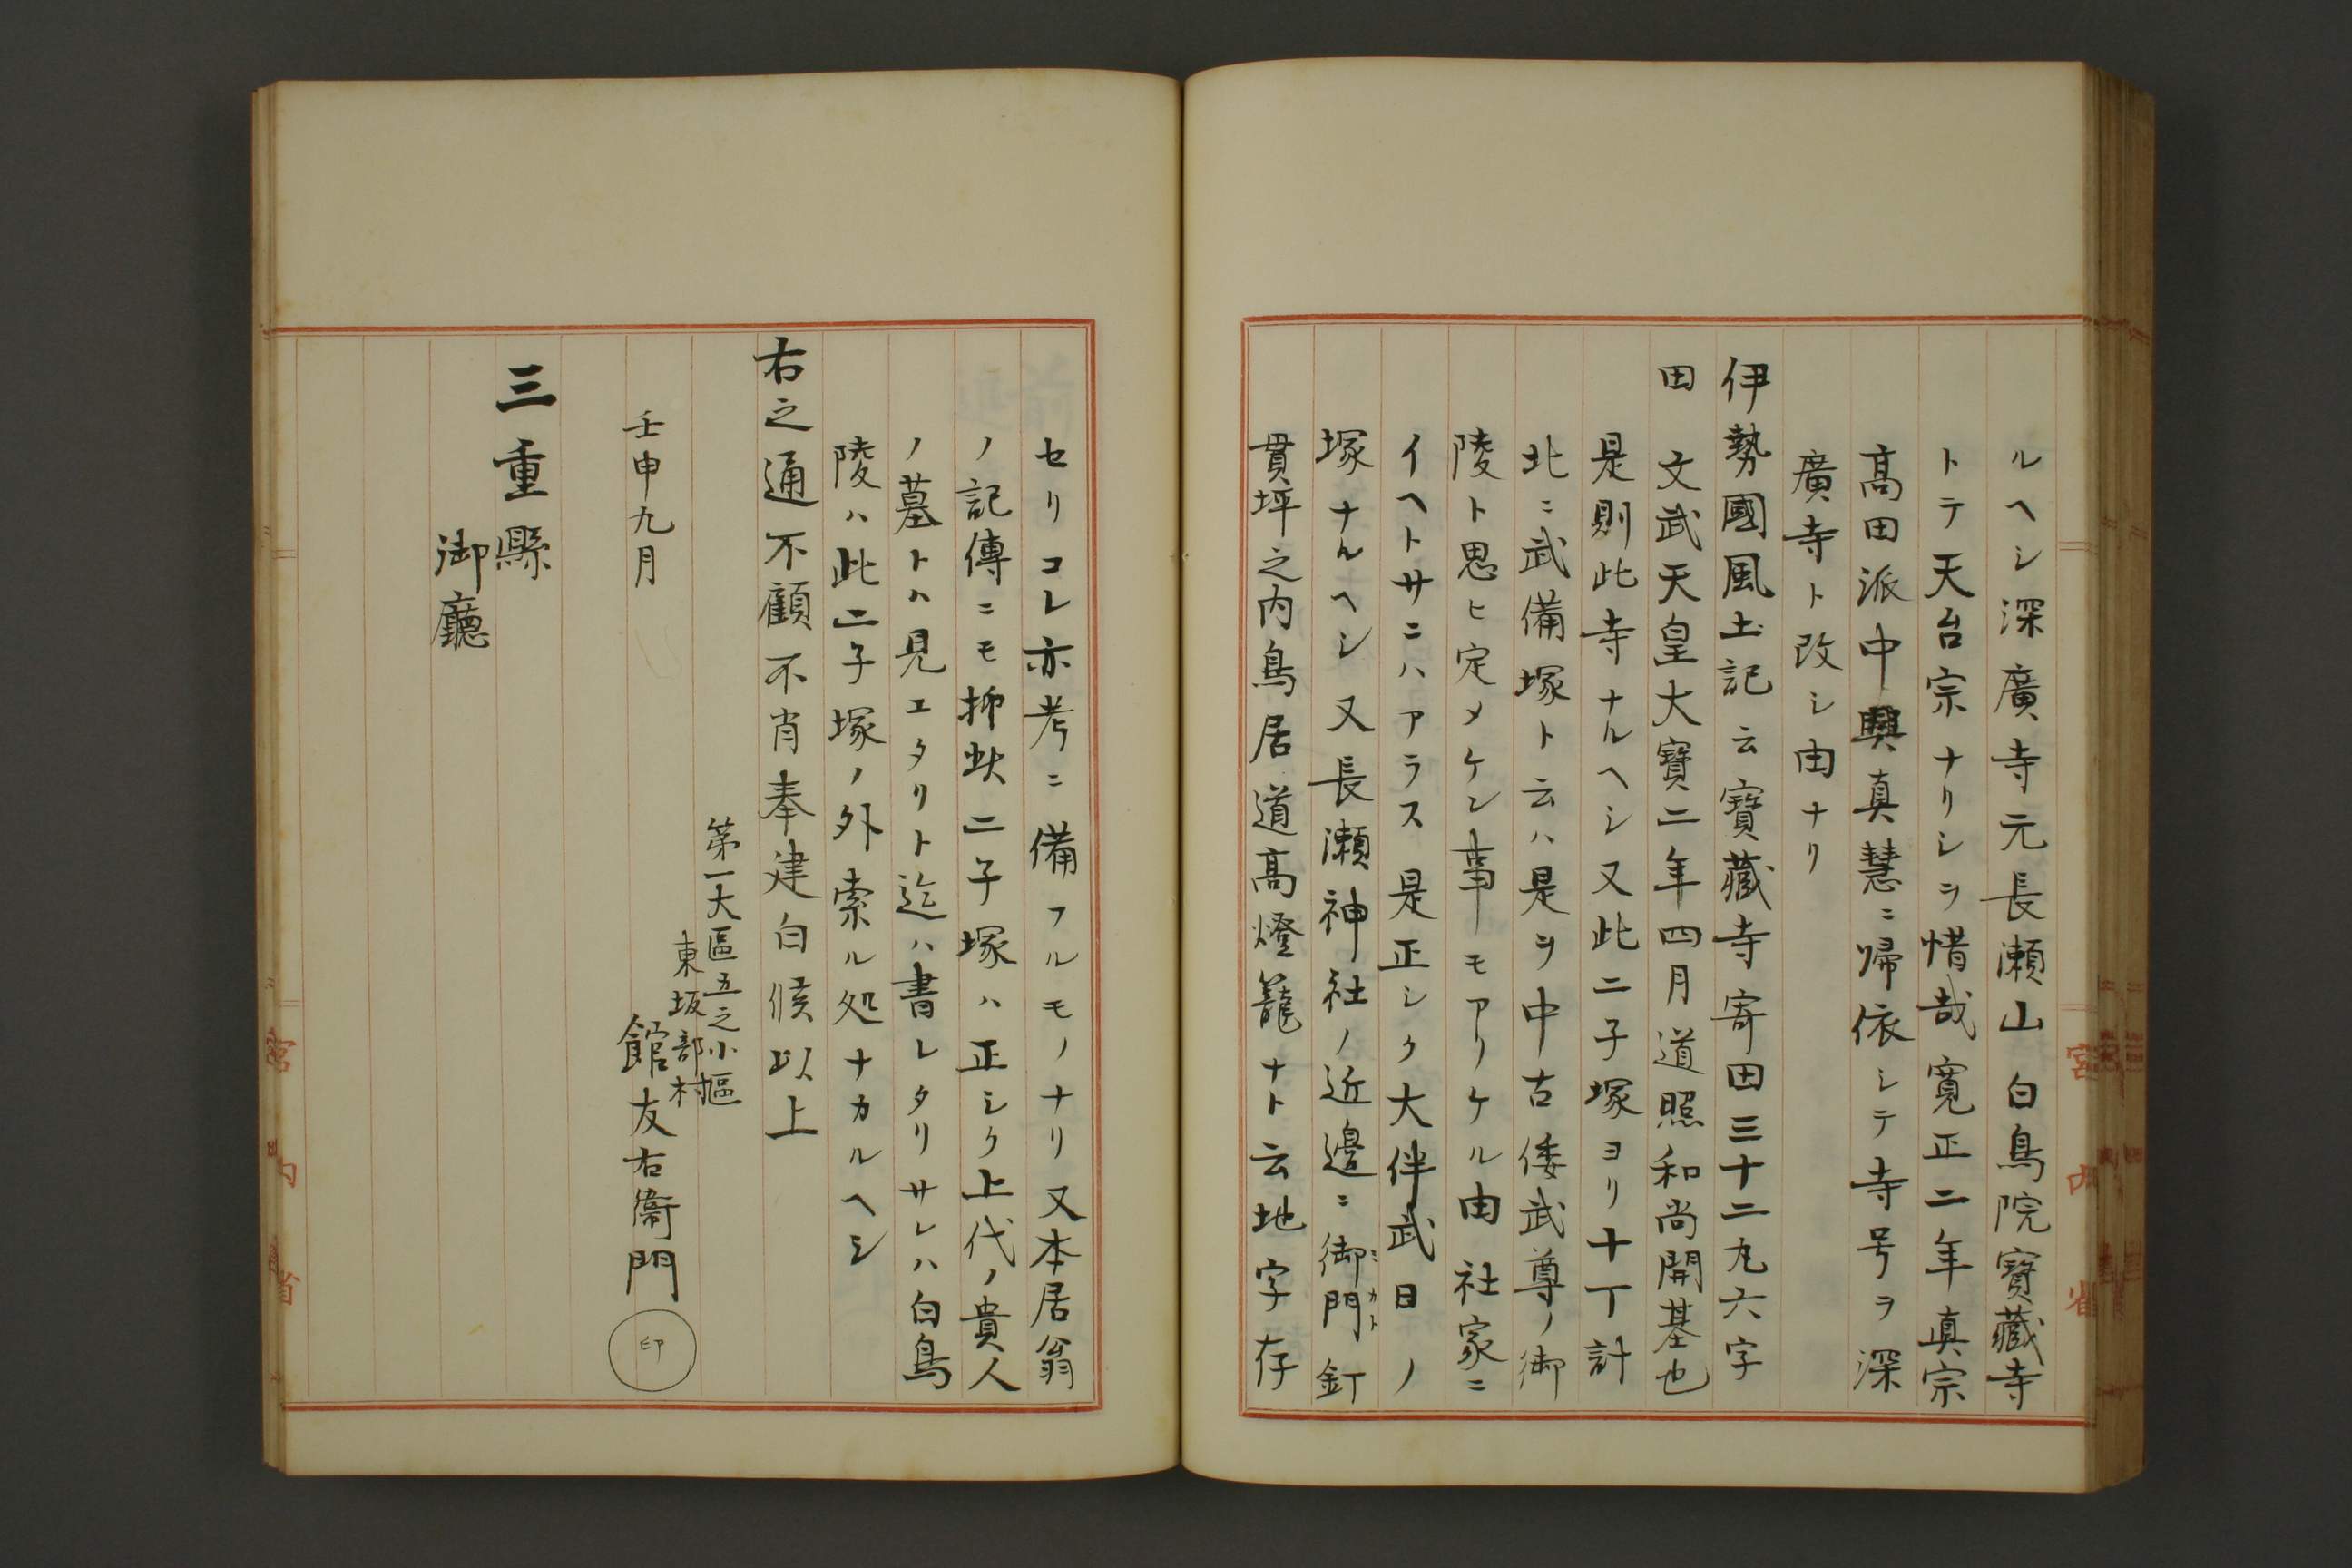 ルヘシ深廣寺元長瀬山白鳥院寶藏寺
トテ天台宗ナリシヲ惜哉寛正二年真宗
髙田派中興真慧ニ歸依シテ寺号ヲ深
廣寺ト改シ由ナリ
伊勢國風土記云寶藏寺寄田三十二九六字
田文武天皇大寶二年四月道照和尚開基也
是則此寺ナルヘシ又此二子塚ヨリ十丁計
北ニ武備塚ト云ハ是ヲ中古倭武尊ノ御
陵ト思ヒ定メケン事モアリケル由社家ニ
イヘトサニハアラス是正シク大伴武日ノ
塚ナルヘシ又長瀬神社ノ近邉ニ御門釘
ミカト
貫坪之内鳥居道髙燈籠ナト云地字存
セリコレ亦考ニ備フルモノナリ又本居翁
ノ記傳ニモ抑此二子塚ハ正シク上代ノ貴人
ノ墓トハ見エタリト迄ハ書レタリサレハ白鳥
陵ハ此二子塚ノ外索ル処ナカルヘシ
右之通不顧不肖奉建白候以上
第一大區五之小區
東坂部村
館友右衞門 印
壬申九月
三重縣
御廳
宮内省
宮内省